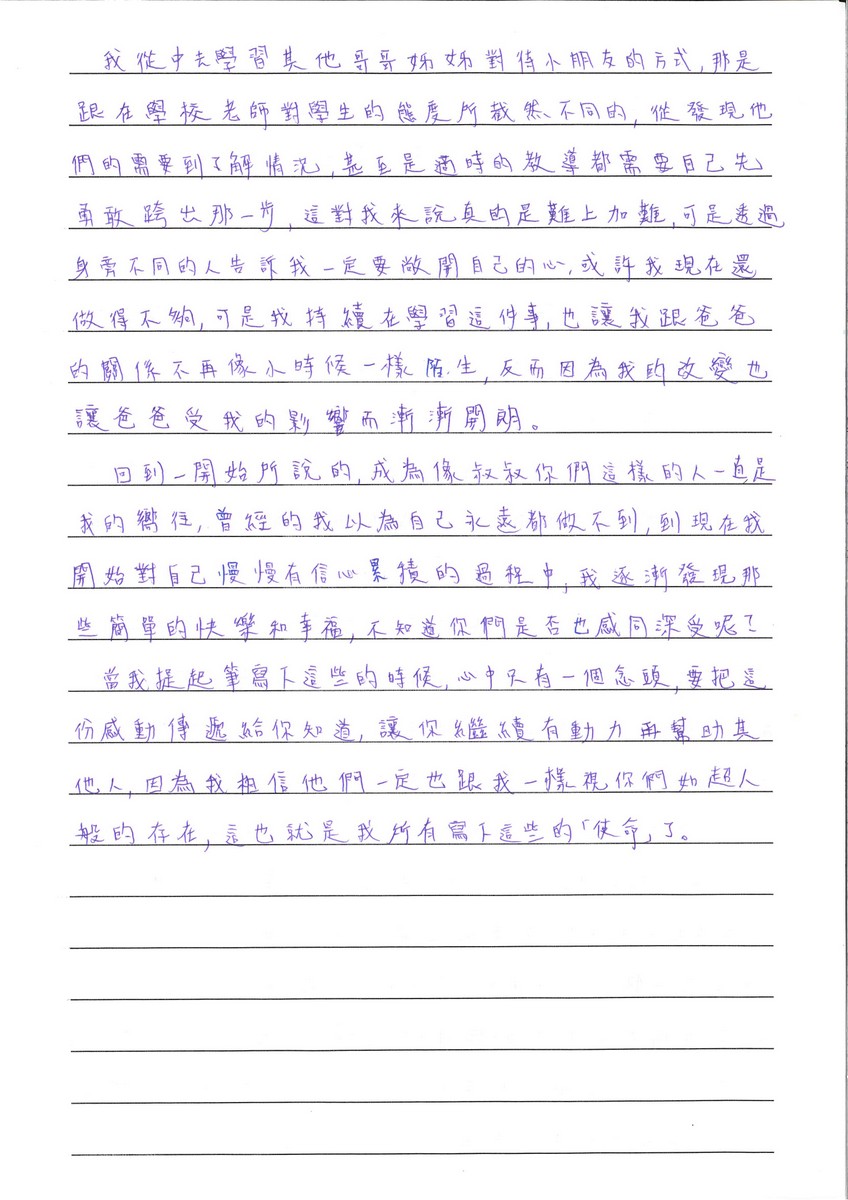 我從中去學習其他哥哥姊姊對待小朋友的方式,那是
跟在學校老師對學生的態度所截然不同的,從發現他
們的需要到了解情況,甚至是適時的教導都需要自己先
勇敢跨出那一步,這對我來說真的是難上加難,可是透過
身旁不同的人告訴我一定要敞開自己的心,或許我現在還
做得不夠,可是我持續在學習這件事,也讓我跟爸爸
的關係不再像小時候一樣陌生,反而因為我的改變也
讓爸爸受我的影響而漸漸開朗。
回到一開始所說的,成為像叔叔你們這樣的人一直是
我的嚮往,曾經的我以為自己永遠都做不到,到現在我
開始對自己慢慢有信心累積的過程中,我逐漸發現那
些簡單的快樂和幸福,不知道你們是否也感同深受呢?
當我提起筆寫下這些的時候,心中只有一個念頭,要把這
份感動傳遞給你知道,讓你繼續有動力再幫助其
他人,因為我相信他們一定也跟我一樣視你們如超人
般的存在,這也就是我所有寫下這些的「使命」了。